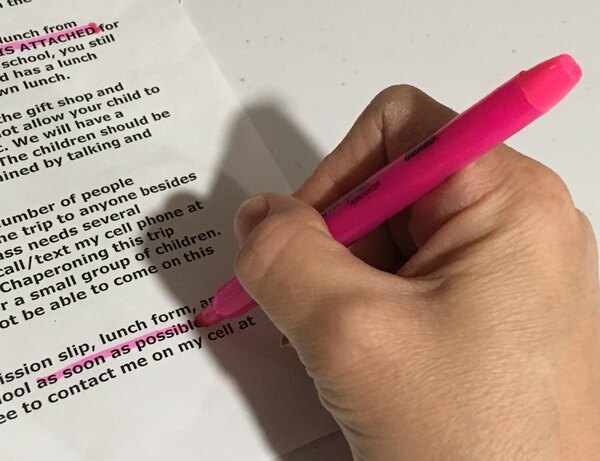 lunch from
IS ATTACHED for
school, you still
d has a lunch
wn lunch.
the gift shop and
ot allow your child to
We will have a
The children should be
ined by talking and
umber of people
e trip to anyone besides
ass needs several
call/text my cell phone at
Chaperoning this trip
r a small group of children.
ot be able to come on this
ission slip, lunch form,
ool as soon as possible
ee to contact me on my cell at